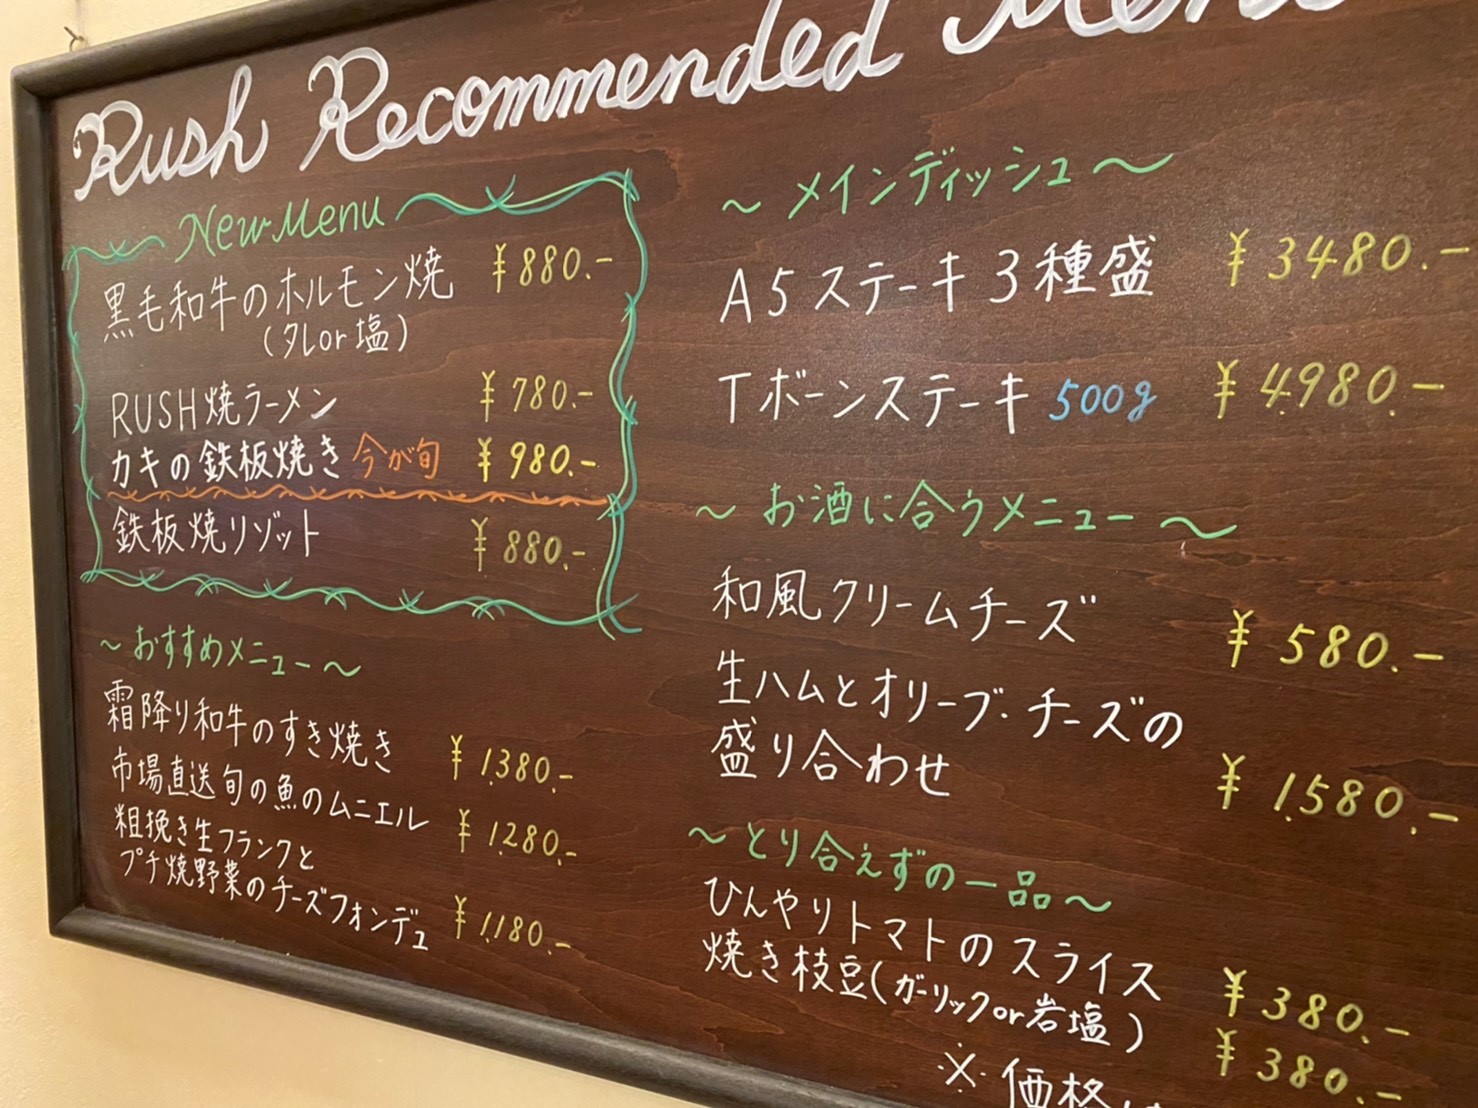 Rush Recommended Menu
New Menu
黒毛和牛のホルモン焼 ¥880.-
(タレor塩)
RUSH焼ラーメン ¥780.-
カキの鉄板焼き 今が旬 ¥980.-
鉄板焼リゾット ¥880.-
~おすすめメニュー~
霜降り和牛のすき焼き ¥1.380.-
市場直送旬の魚のムニエル ¥1.280.-
粗挽き生フランクと
プチ焼野菜のチーズフォンデュ ¥1.180.-
~メインディッシュ~
A5ステーキ3種盛 ¥3480.-
Tボーンステーキ 500g ¥4.980.-
~お酒に合うメニュー~
和風クリームチーズ ¥580.-
生ハムとオリーブ・チーズの
盛り合わせ ¥1.580.-
~とり合えずの一品~
ひんやりトマトのスライス ¥380.-
焼き枝豆(ガーリックor岩塩) ¥380.-
※価格